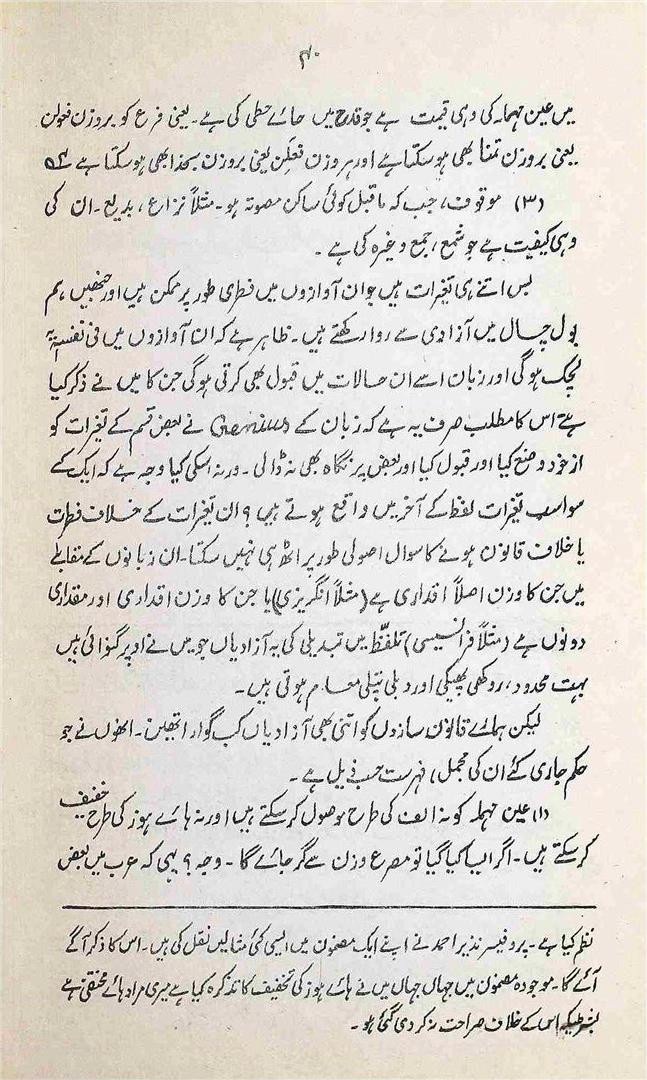 ۴۰
میں عین مہملہ کی وہی قیمت ہے جو قدح میں حائے حطی کی ہے۔ یعنی فرع کو بروزن فعولن
یعنی بروزن تمنا بھی ہو سکتا ہے اور بروزن تعلن یعنی بروزن بخدا بھی ہو سکتا ہے
(۳) موقوف، جب کہ ماقبل کوئی ساکن مصوتہ ہو۔ مثلاً نزاع، بدیع۔ ان کی
وہی کیفیت ہے جو شمع، جمع وغیرہ کی ہے۔
بس اتنے ہی تغیرات ہیں جو ان آوازوں میں فطری طور پر ممکن ہیں اور جنھیں ہم
بول چال میں آزادی سے روا رکھتے ہیں۔ ظاہر ہے کہ ان آوازوں میں فی نفسہٖ یہ
لچک ہوگی اور زبان اسے ان حالات میں قبول بھی کرتی ہوگی جن کا میں نے ذکر کیا
ہے اس کا مطلب صرف یہ ہے کہ زبان کے Genius نے بعض قسم کے تغیرات کو
از خود وضع کیا اور قبول کیا اور بعض پر نگاہ بھی نہ ڈالی۔ ورنہ اسکی کیا وجہ ہے کہ ایک کے
سوا سب تغیرات لفظ کے آخر میں واقع ہوتے ہیں؟ ان تغیرات کے خلاف فطرت
یا خلاف قانون ہونے کا سوال اصولی طور پر اٹھ ہی نہیں سکتا۔ ان زبانوں کے مقابلے
میں جن کا وزن اصلاً اقداری ہے (مثلاً انگریزی) یا جن کا وزن اقداری اور مقداری
دونوں ہے (مثلاً فرانسیسی) تلفّظ میں تبدیلی کی یہ آزادیاں جو میں نے اوپر گنوائی ہیں
بہت محدود، روکھی پھیکی اور دبلی پتلی معلوم ہوتی ہیں۔
لیکن ہمارے قانون سازوں کو اتنی بھی آزادیاں کب گوارا تھیں۔ انھوں نے جو
حکم جاری کئے ان کی مجمل، فہرست حسب ذیل ہے۔
(۱) عین مہملہ کو نہ الف کی طرح موصول کر سکتے ہیں اور نہ ہائے ہوز کی طرح خفیف
کر سکتے ہیں۔ اگر ایسا کیا گیا تو مصرع وزن سے گر جائے گا۔ وجہ؟ یہی کہ عرب میں بعض
نظم کیا ہے۔ پروفیسر نذیر احمد نے اپنے ایک مضمون میں ایسی کئی مثالیں نقل کی ہیں۔ اس کا ذکر آگے
آئے گا۔ موجودہ مضمون میں جہاں جہاں میں نے ہائے ہوز کی تخفیف کا تذکرہ کیا ہے میری مراد ہائے مختفی ہے
بشرطیکہ اس کے خلاف صراحت نہ کر دی گئی ہو۔